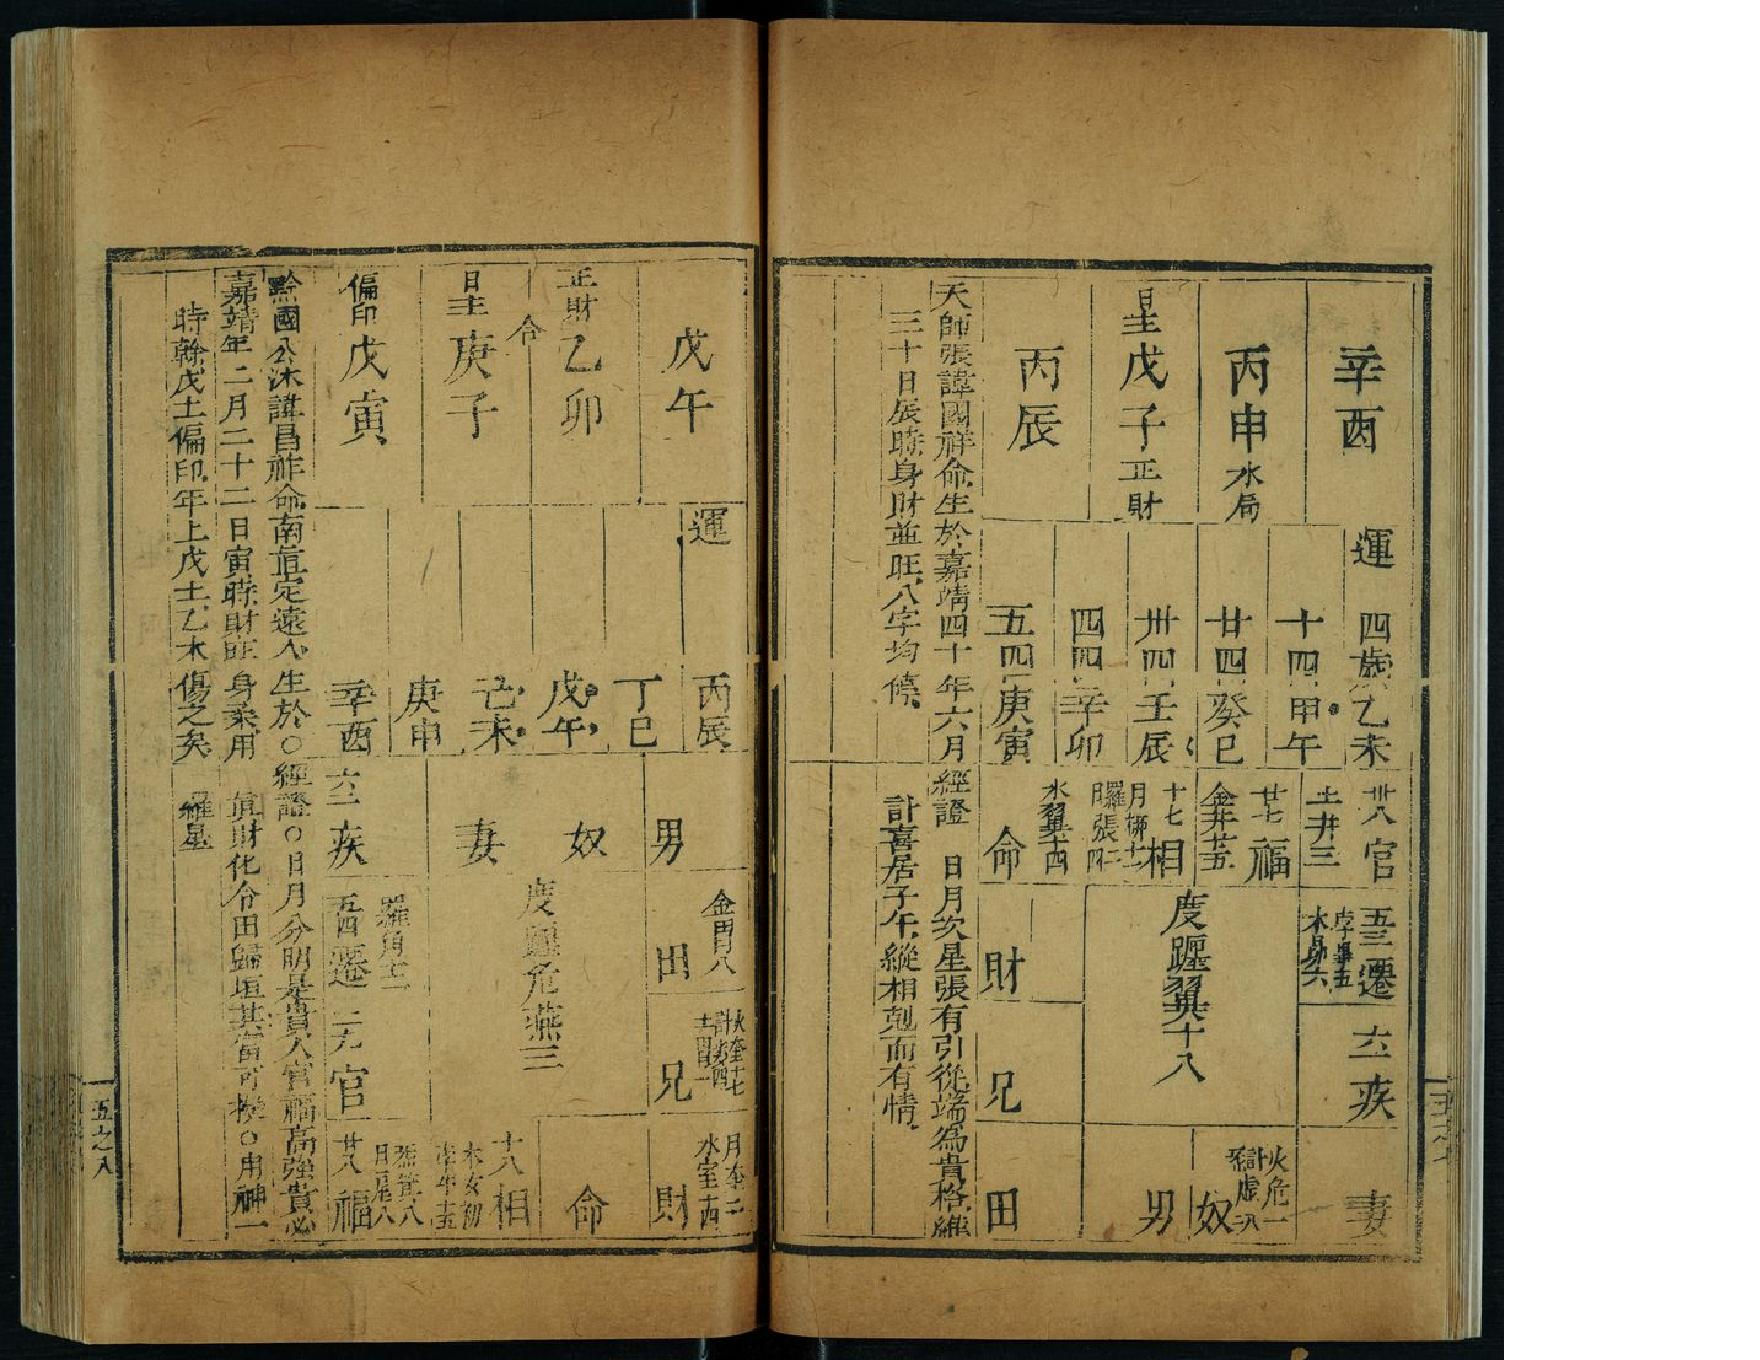 辛酉
丙申水局
日主戊子正財
丙辰
運
四歲乙未
十四甲午
廿四癸巳
卅四壬辰
四四辛卯
五四庚寅
卅八官
土井三
廿七福
金井廿五
十七相
月柳十二
羅張二
水翼十四
命
五三遷
六二疾
妻
度躔翼十八
財
兄
田
男
奴
火危一
天師張諱國祥命生於嘉靖四十年六月
三十日辰時身財並旺八字均停
經證 日月次星張有引從端為貴格羅
計喜居子午縱相剋而有情
戊午
正財乙卯
合
日主庚子
偏印戊寅
運
丙辰
丁巳
戊午
己未
庚申
辛酉
男
奴
妻
六二疾
金胃八
田
度躔危燕三
羅角十二
五四遷
兄
火奎十七
二九官
財
月奎二
水室十四
命
十八相
木女初
廿八福
黔國公沐諱昌祚命南直定遠人生於○經證○日月分明是貴人官福高強貴必
嘉靖年二月二十二日寅時財旺身柔用 真財化令田歸垣其富可楼○用神一
時幹戊土偏印年上戊土乙木傷之矣 羅星
五之八